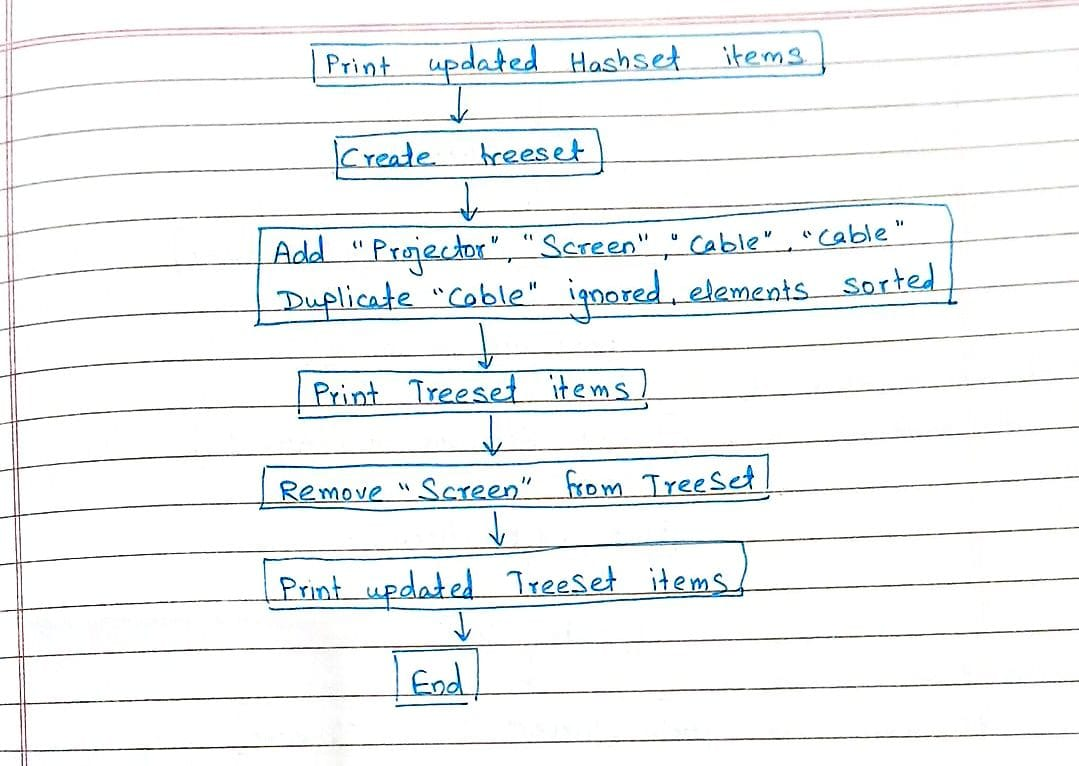 Print updated Hashset items
Create treeset
Add "Projector", "Screen", "Cable", "Cable"
Duplicate "Cable" ignored, elements sorted
Print Treeset items
Remove "Screen" from TreeSet
Print updated TreeSet items
End